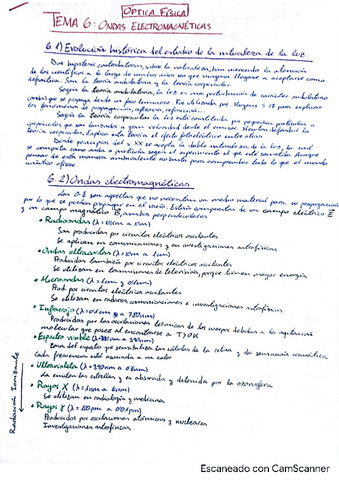 ÓPTICA FÍSICA
TEMA 6: ONDAS ELECTROMAGNÉTICAS
6.1) Evolución histórica del estudio de la naturaleza de la luz
Dos hipótesis contradictorias, sobre la naturaleza, han merecido la atención
de los científicos a lo largo de muchos años sin que ninguna llegase a aceptarse como
definitiva. Son la teoría ondulatoria y la teoría corpuscular.
Según la teoría ondulatoria, la luz es una perturbación de carácter ondulatorio
que se propaga desde un foco luminoso. Fue utilizada por Huygens s.17 para explicar
los fenómenos de propagación, reflexión, refracción...
Según la teoría corpuscular la luz está constituida por pequeñas partículas o
corpúsculos que son lanzados a gran velocidad desde el emisor. Newton defendió la
teoría corpuscular. Explica esta teoría el efecto fotoeléctrico entre otros.
Desde principios del s.XX se acepta la doble naturaleza de la luz, la cual
se comporta como onda o partícula según el experimento al que esté sometida. Aunque
pensar de esta manera ambivalente no basta para comprender todo lo que el mundo
cuántico ofrece.
6.2) Ondas electromagnéticas
Las O.E son aquellas que no necesitan un medio material para su propagación
por lo que se pueden propagar en el vacío. Están compuestas de un campo eléctrico E
y un campo magnético B, ambos perpendiculares
• Radioondas
Son producidas por circuitos eléctricos oscilantes
Se aplican en comunicaciones y en investigaciones astrofísicas
• Ondas ultracortas
Producidas también por circuitos eléctricos oscilantes
Se utilizan en transmisiones de televisión, porque tienen mayor energía
• Microondas
Prod. por circuitos eléctricos oscilantes
Se utilizan en radares comunicaciones e investigaciones astrofísicas
• Infrarrojo
Producidas por las oscilaciones térmicas de los cuerpos debidas a la agitación
molecular que posee al encontrarse a T>0K
• Espectro visible
Zona del espectro que sensibiliza las células de la retina y da sensación cromática
Cada frecuencia está asociada a un color
• Ultravioleta
La emiten las estrellas y es absorbida y detenida por la ozonosfera
• Rayos X
Se utilizan en radiología y medicina
• Rayos γ
Producidos por oscilaciones atómicas y nucleares
Investigaciones astrofísicas
Radiación Ionizante
Escaneado con CamScanner